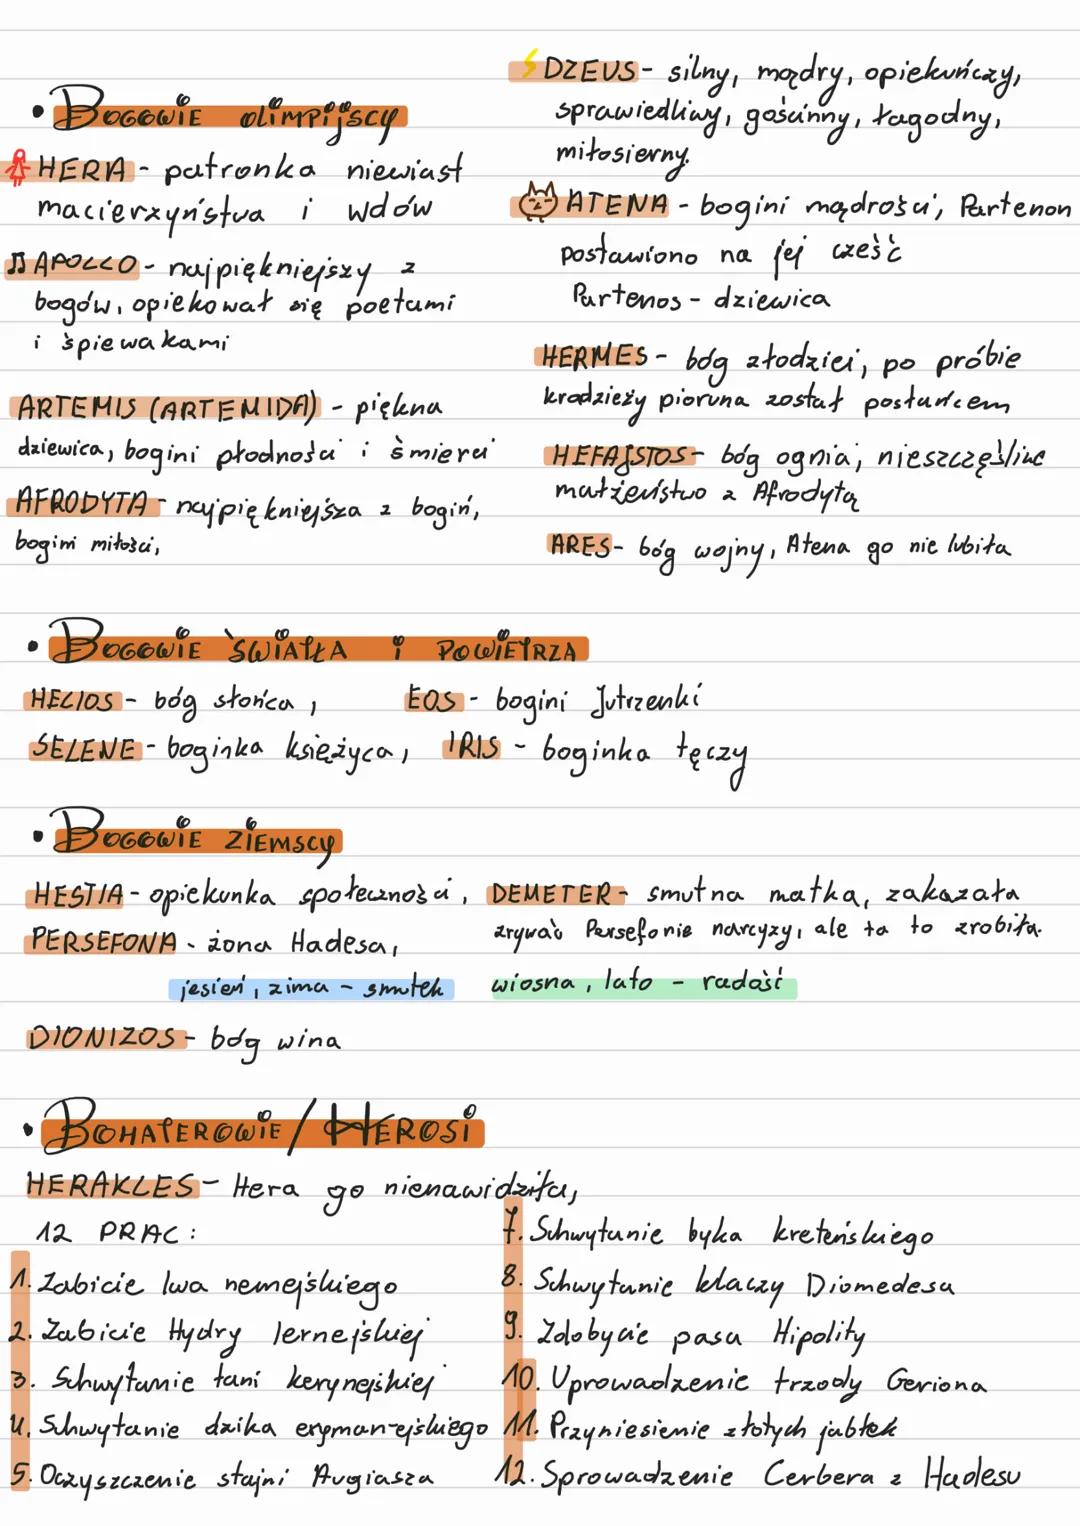 • Bogowie olimpijscy
HERA - patronka niewiast
macierzyństwa i wdów
APOLLO - najpiękniejszy z
bogów, opiekował się poetami
i śpiewakami
ARTEMIS (ARTEMIDA) - piękna
dziewica, bogini płodności i śmierci
AFRODYTA - najpiękniejsza z bogiń,
bogini miłości,
DZEUS - silny, mądry, opiekuńczy,
sprawiedliwy, gościnny, łagodny,
miłosierny.
ATENA - bogini mądrości, Partenon
postawiono na jej cześć
Partenos - dziewica
HERMES - bóg złodziei, po próbie
kradzieży pioruna został posłańcem
HEFAJSTOS - bóg ognia, nieszczęśliwe
małżeństwo z Afrodytą
ARES - bóg wojny, Atena go nie lubiła
• Bogowie światła i powietrza
HELIOS - bóg słońca, EOS - bogini Jutrzenki
SELENE - boginka księżyca, IRIS - boginka tęczy
• Bogowie ziemscy
HESTIA - opiekunka społeczności, DEMETER - smutna matka, zakazała
PERSEFONA - żona Hadesa, zrywać Persefonie narcyzy, ale ta to zrobiła.
jesień, zima - smutek wiosna, lato - radość
DIONIZOS - bóg wina
• Bohaterowie / Herosi
HERAKLES - Hera go nienawidziła,
12 PRAC:
1. Zabicie lwa nemejskiego
2. Zabicie Hydry lernejskiej
3. Schwytanie łani kerynejskiej
4. Schwytanie dzika eryman-ejskiego
5. Oczyszczenie stajni Augiasza
7. Schwytanie byka kreteńskiego
8. Schwytanie klaczy Diomedesa
9. Zdobycie pasa Hipolity
10. Uprowadzenie trzody Geriona
11. Przyniesienie złotych jabłek
12. Sprowadzenie Cerbera z Hadesu